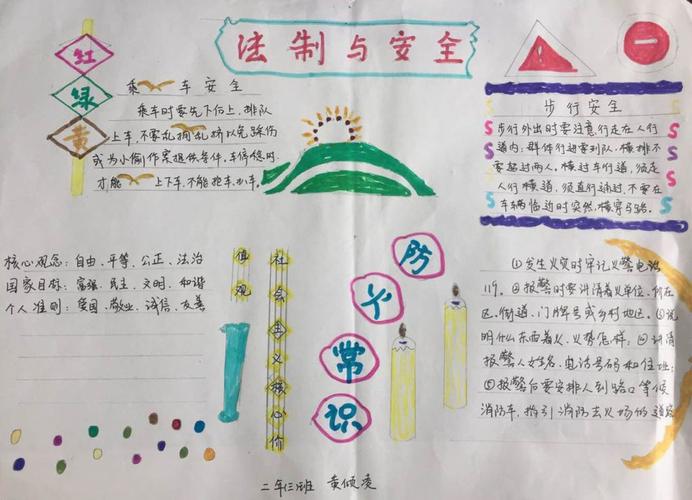 法制与安全
红
绿
黄
乘车安全
乘车时要先下后上,排队
上车,不要乱拥乱挤以免踩伤
或为小偷作案提供条件,车停稳时
才能上下车,不能抢车、扒车。
步行安全
步行外出时要注意行走在人行
道内;群体行进要列队,横排不
要超过两人。横过车行道,须走
人行横道,须直行通过,不要在
车辆临近时突然横穿马路。
核心观念:自由、平等、公正、法治
国家目标:富强、民主、文明、和谐
个人准则:爱国、敬业、诚信、友善
社会主义核心价
值观
防火常识
①发生火灾时牢记火警电话
119。②报警时要讲清着火单位、所在
区、街道、门牌号或乡村地区。③说
明什么东西着火,火势怎样;④讲清
报警人姓名、电话号码和住址;
⑤报警后要安排人到路口等候
消防车,指引消防去火场的道路
二年三班 黄倾凌